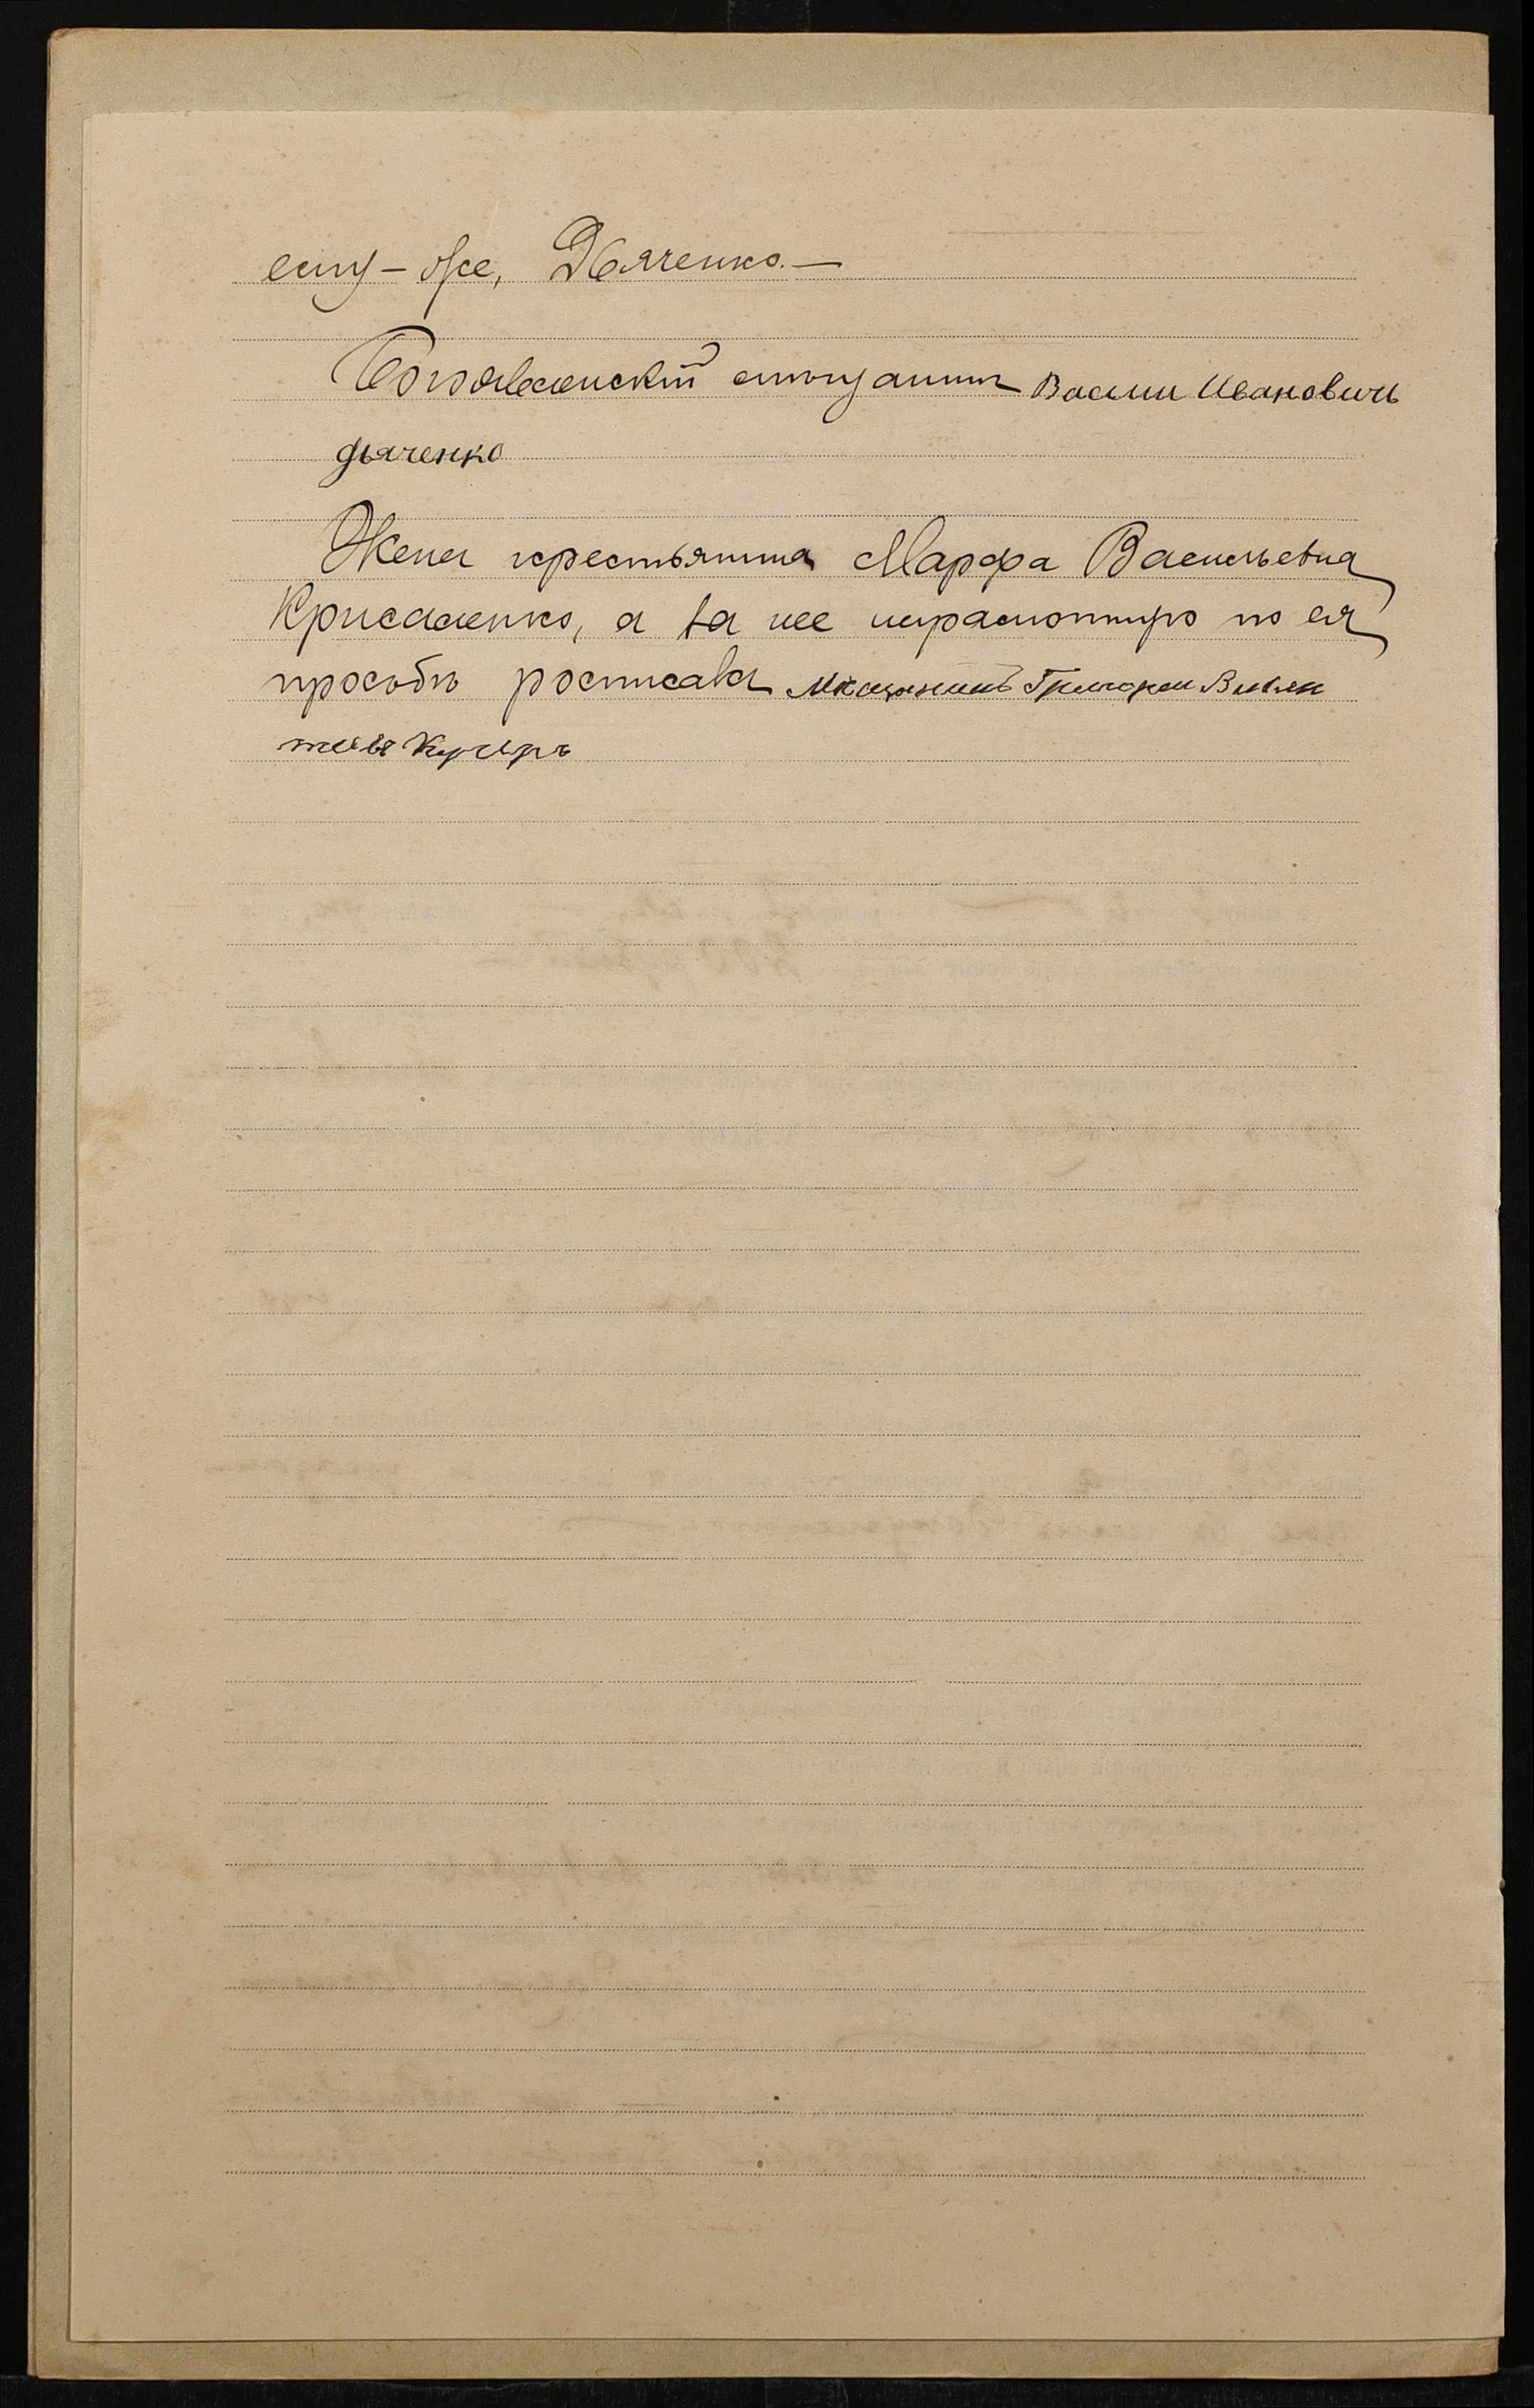 ему-же, Дяченко.—
Богоявленскій мѣщанинъ Васили Ивановичъ
дьяченко
Жена крестьянина Марфа Васильевна
Крисаленко, а за нее неграмотную по ея
просьбѣ росписался Мещянинъ Григорѣи
Кучеръ